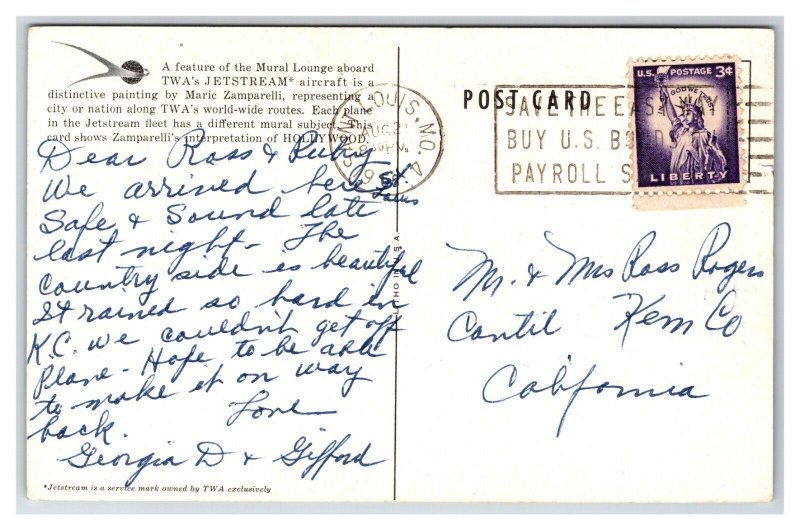 A feature of the Mural Lounge aboard
TWA's JETSTREAM* aircraft is a
distinctive painting by Maric Zamparelli, representing a
city or nation along TWA's world-wide routes. Each plane
in the Jetstream fleet has a different mural subject. This
card shows Zamparelli's interpretation of HOLLYWOOD.
Dear Ross & Ruby
We arrived here St. Louis
Safe & Sound late
last night - The
country side is beautiful
It rained so hard in
K.C. we couldn't get off
Plane - Hope to be able
to make it on way
back.
Love
Georgia D & Gifford
*Jetstream is a service mark owned by TWA exclusively
LITHO IN U.S.A.
POST CARD
SAINT LOUIS, MO. 4
AUG 21
PM
SAVE THE EASY
BUY U.S. BONDS
PAYROLL
U.S. POSTAGE 3¢
IN GOD WE TRUST
LIBERTY
Mr. & Mrs Ross Rogers
Cantil Kern Co
California